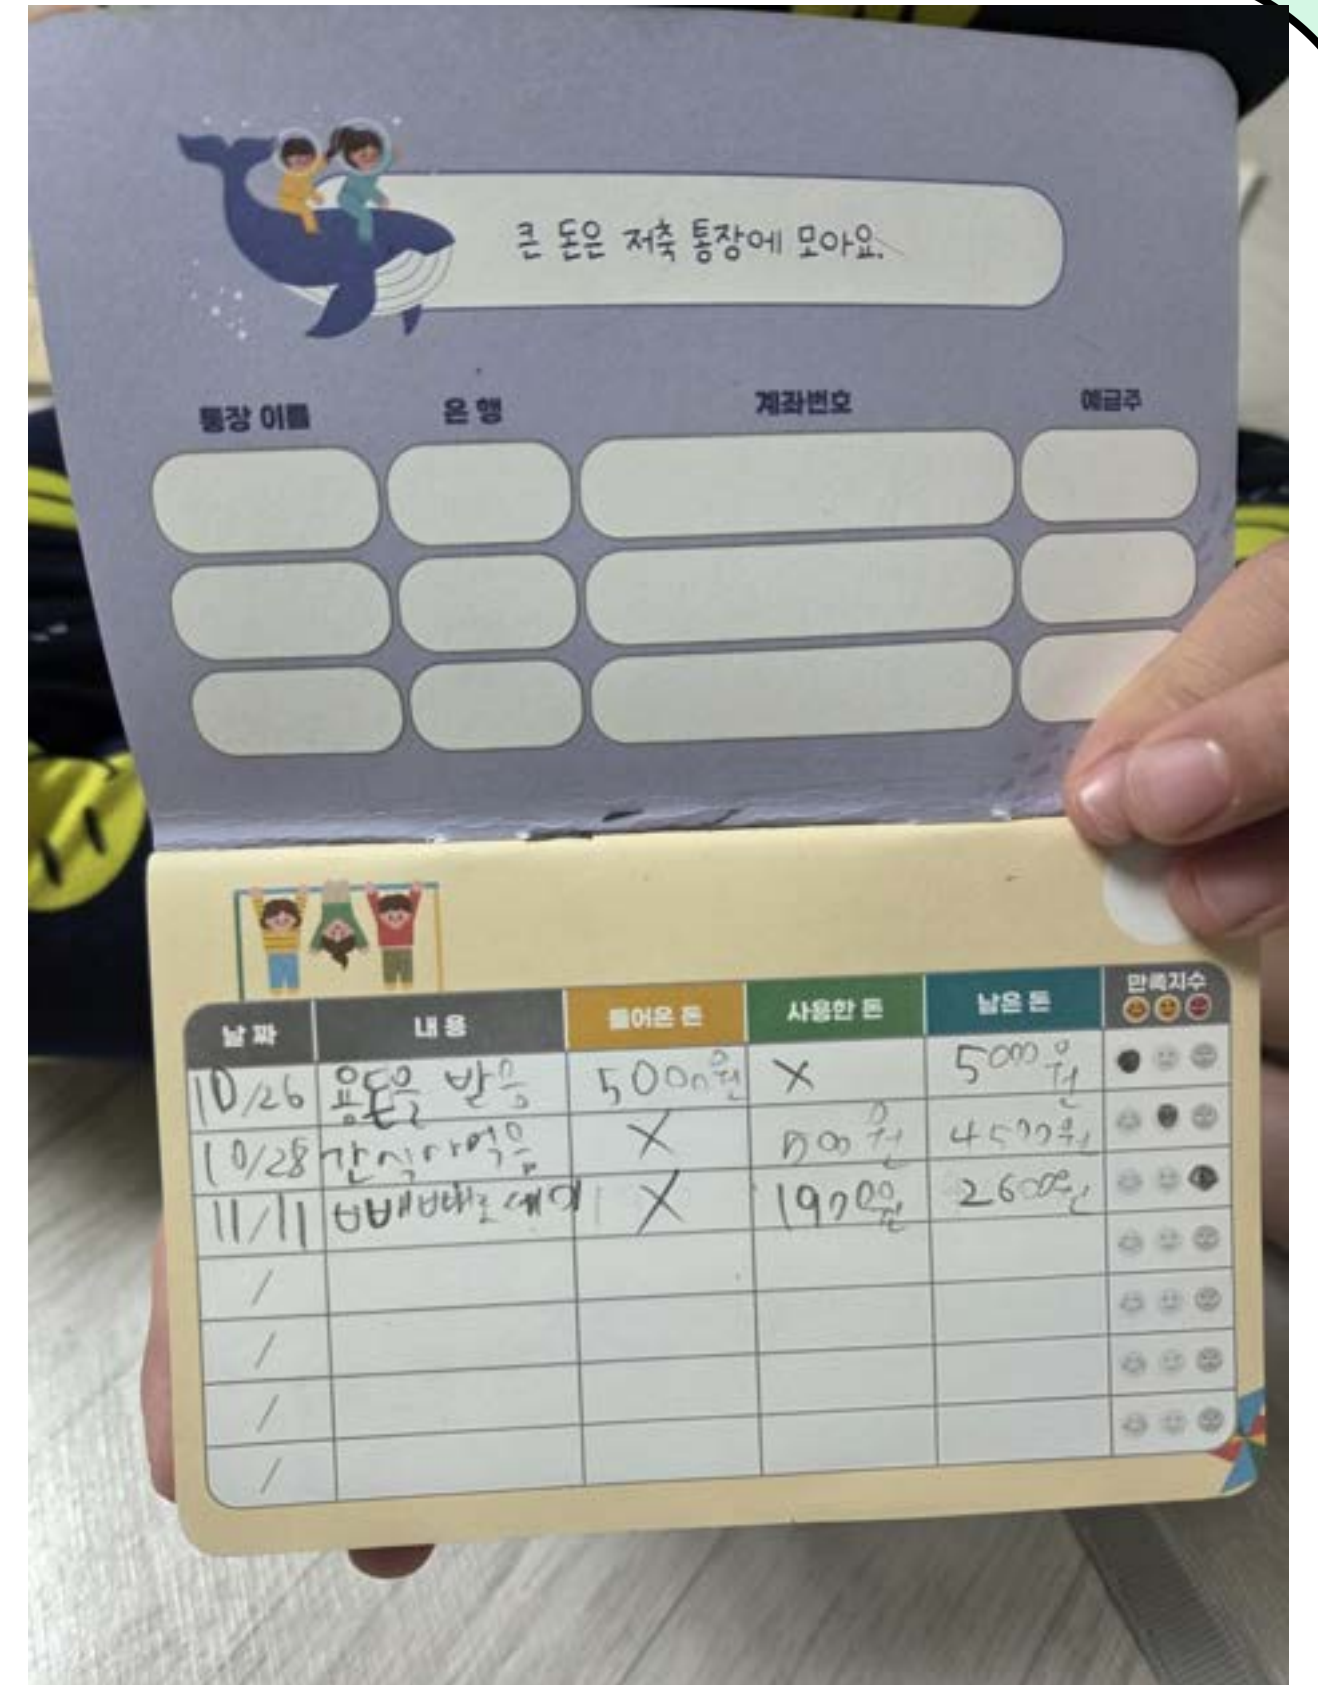 큰 돈은 저축 통장에 모아요.
통장 이름 은행 계좌번호 예금주
날짜 내용 들어온 돈 사용한 돈 남은 돈 만족지수
10/26 용돈을 받음 5000원 X 5000원
10/28 간식사먹음 X 500원 4500원
11/11 빼빼로데이 X 1900원 2600원
/
/
/
/